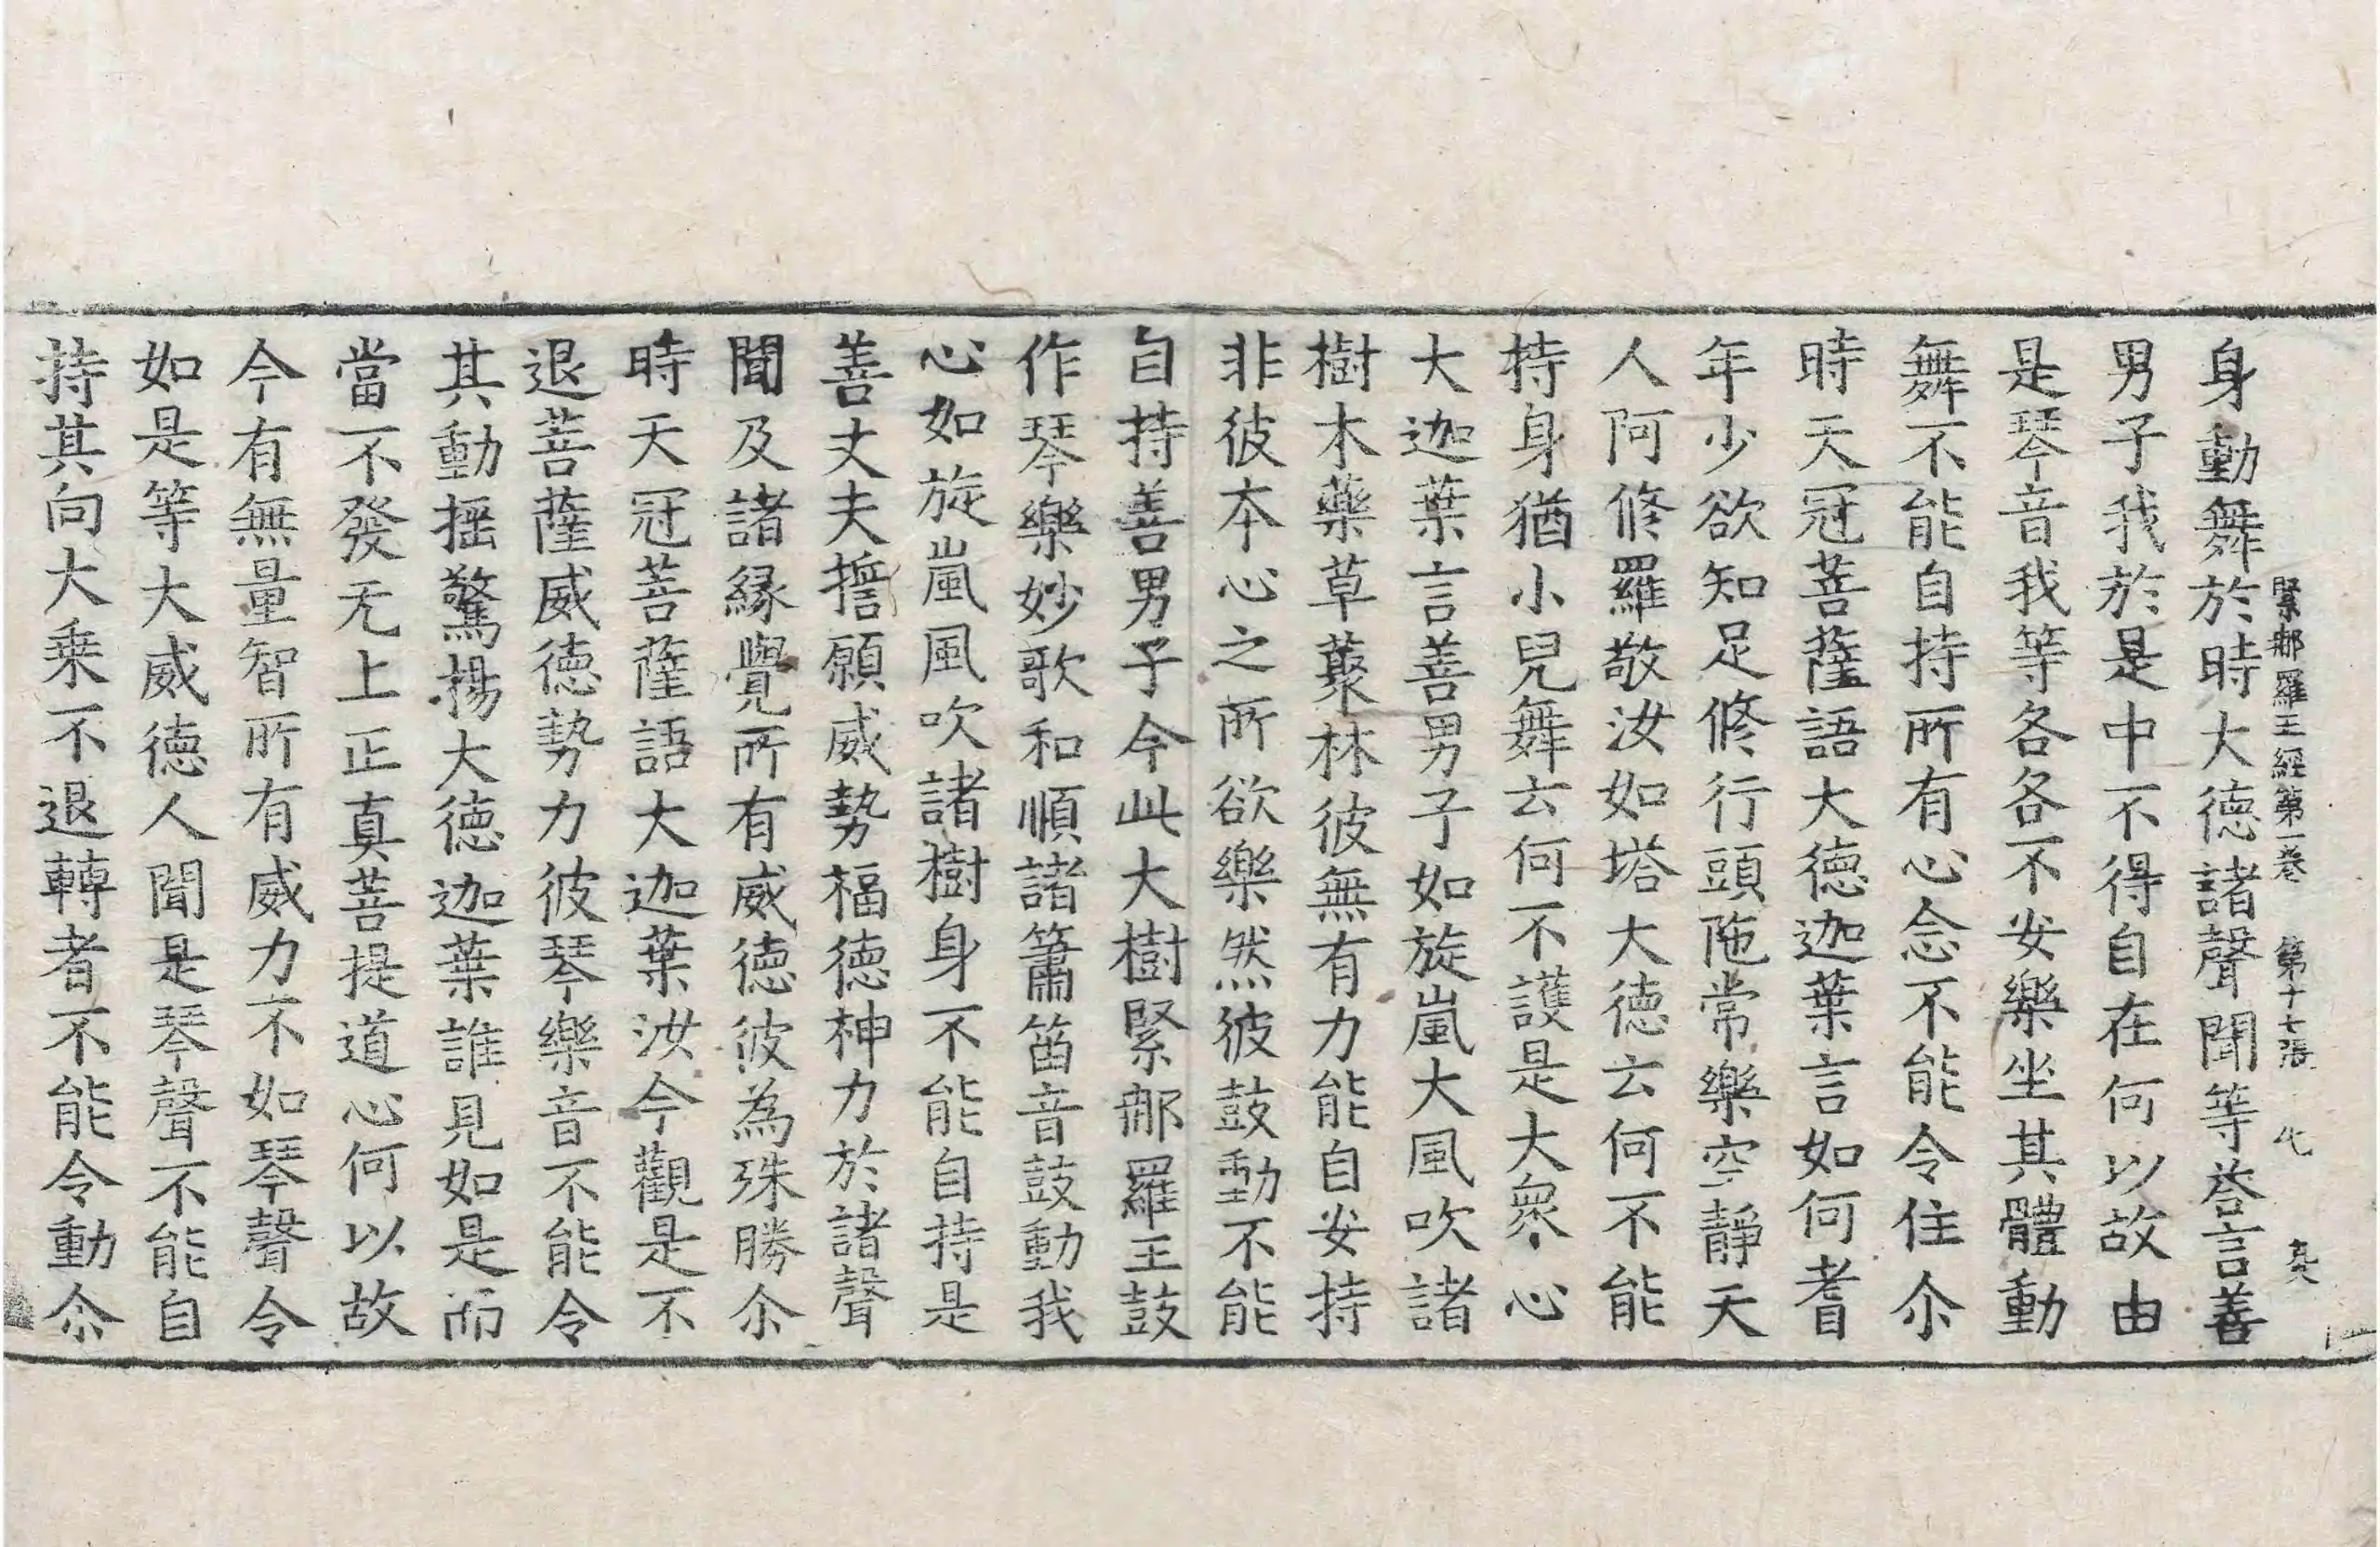 緊那羅王經第一卷　第十七張　化　真
身動舞於時大德諸聲聞等荅言善
男子我於是中不得自在何以故由
是琴音我等各各不安樂坐其體動
舞不能自持所有心念不能令住尒
時天冠菩薩語大德迦葉言如何耆
年少欲知足修行頭陁常樂空靜天
人阿修羅敬汝如塔大德云何不能
持身猶小兒舞云何不護是大衆心
大迦葉言善男子如旋嵐大風吹諸
樹木藥草藂林彼無有力能自安持
非彼夲心之所欲樂然彼鼓動不能
自持善男子今此大樹緊那羅王鼓
作琴樂妙歌和順諸簫笛音鼓動我
心如旋嵐風吹諸樹身不能自持是
善丈夫擔願威勢福德神力於諸聲
聞及諸緣覺所有威德彼為殊勝尒
時天冠菩薩語大迦葉汝今觀是不
退菩薩威德勢力彼琴樂音不能令
其動揺驚揚大德迦葉誰見如是而
當不發无上正真菩提道心何以故
今有無量智所有威力不如琴聲令
如是等大威德人聞是琴聲不能自
持其向大乗不退轉者不能令動尒